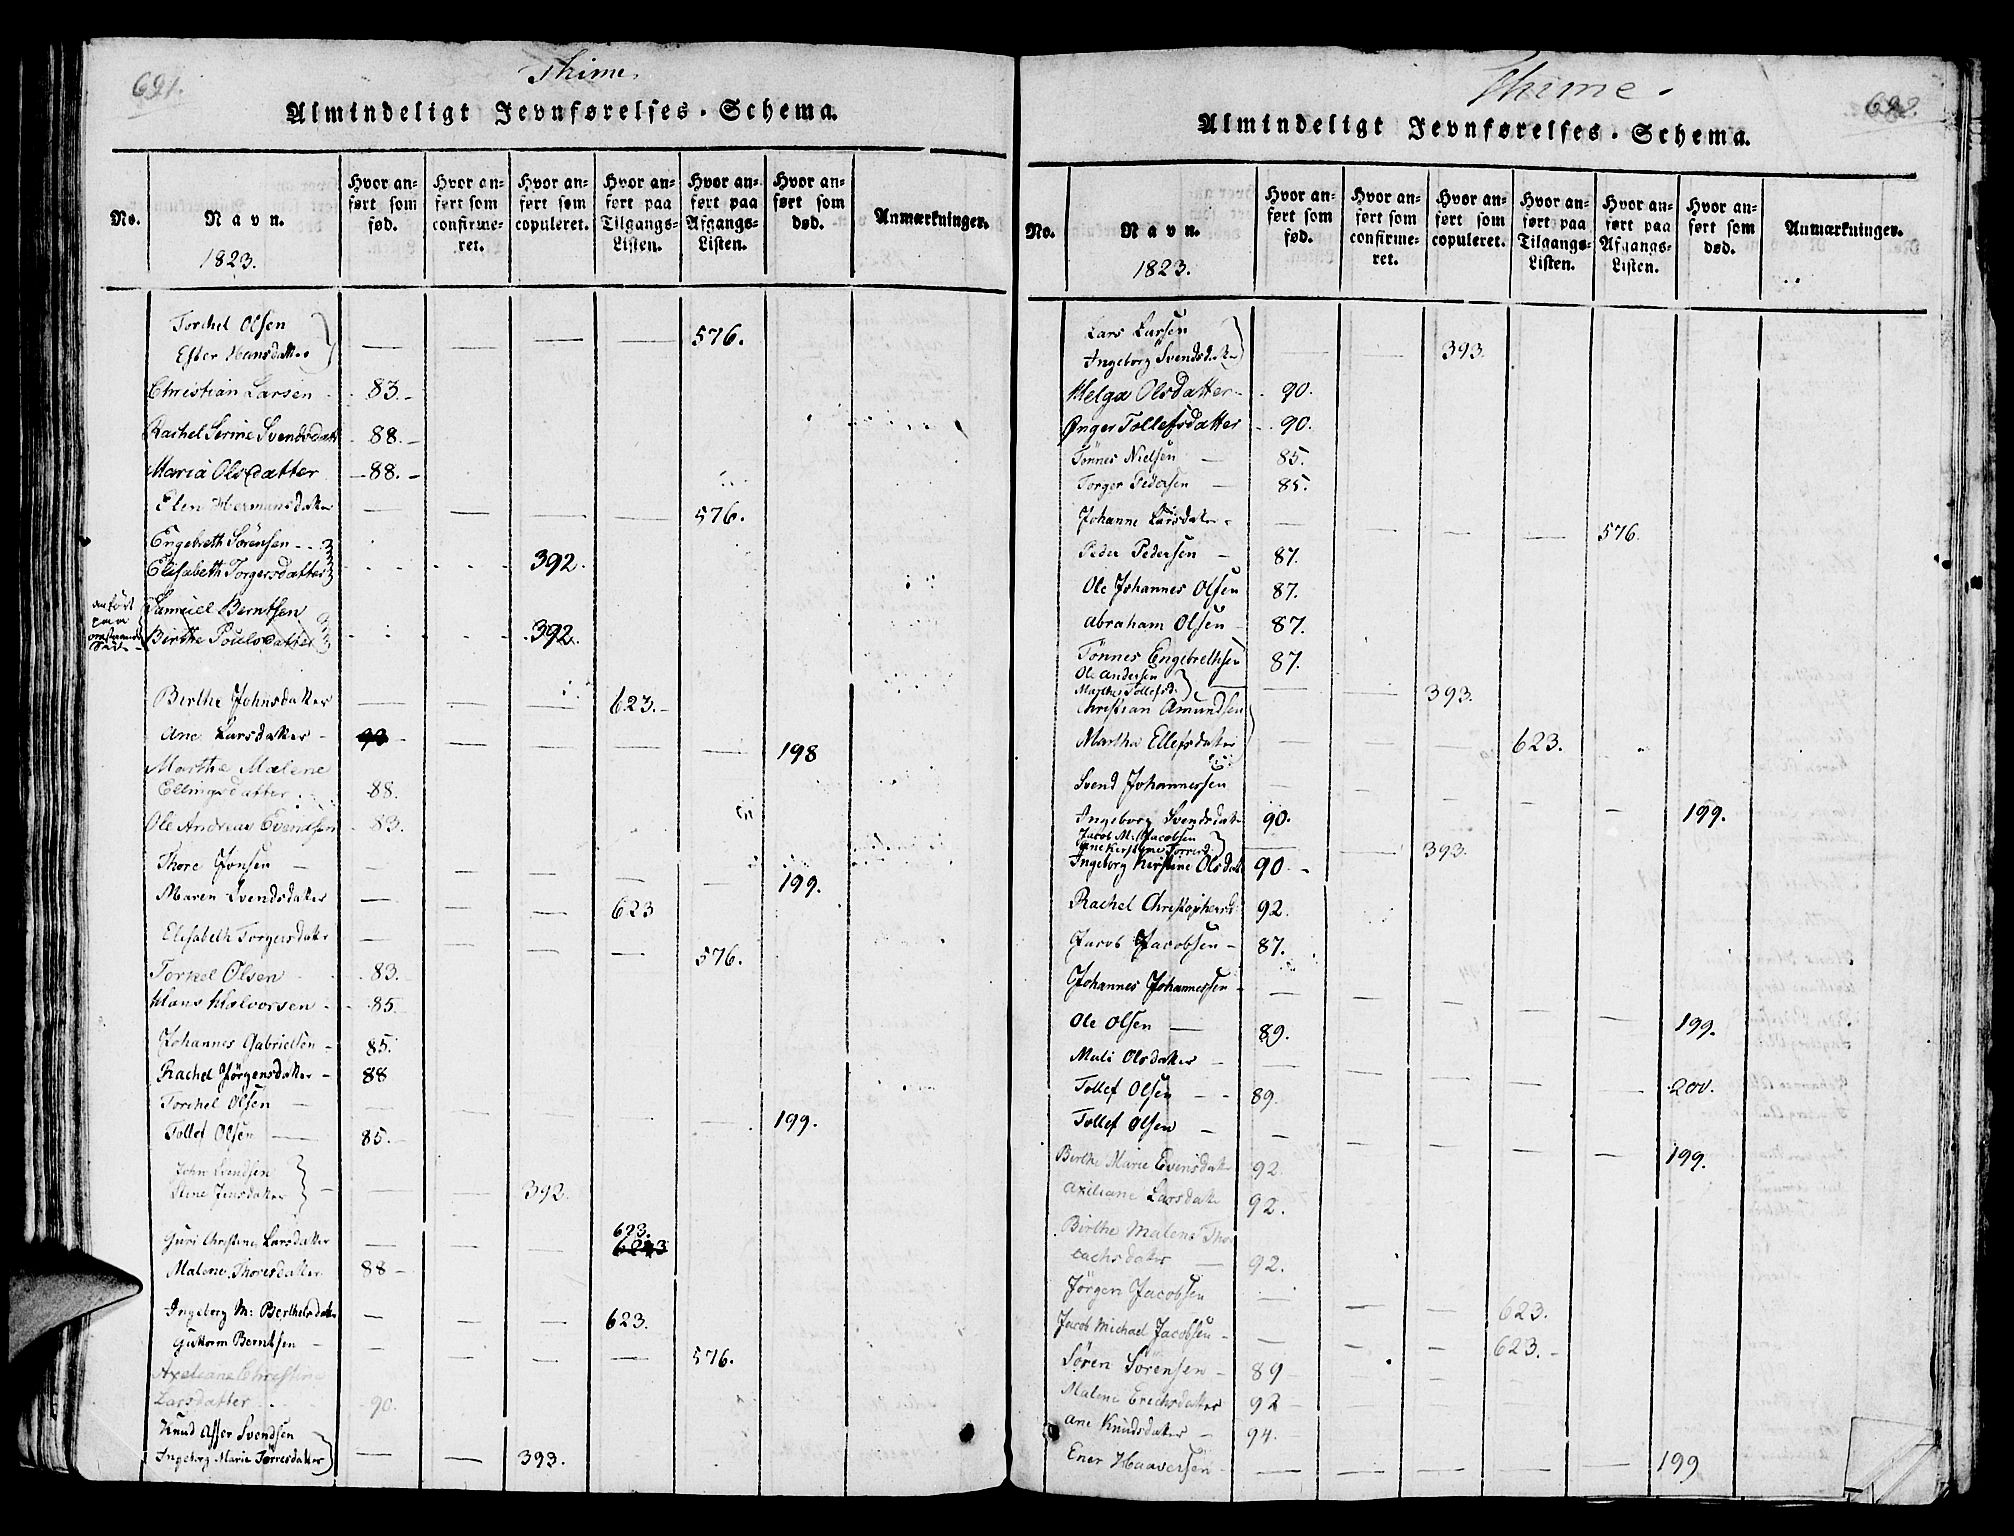 691.
Thime.
Almindeligt Jevnførelses-Schema.
No.
Navn.
1823.
Hvor anført som fød.
Hvor anført som confirmeret.
Hvor anført som copuleret.
Hvor anført paa Tilgangs-Listen.
Hvor anført paa Afgangs-Listen.
Hvor anført som død.
Anmærkninger.
Torchel Olsen
Ester Hansdatter — — — — 576.
Christian Larsen - 83.-
Rachel Serine Svendsdatt - 88.-
Maria Olsdatter - 88.-
Elen Hermansdatter — — — — 576.
Engebreth Sørensen
Elisabeth Torgersdatter 392.
anført paa
Samuel Berntsen
Birthe Poulsdatter 392.
Birthe Johnsdatter — — — 623.-
Ane Larsdatter - 90 — — — — 198
Marthe Malene
Ellingsdatter 88.
Ole Andreas Evendsen 83.
Thore Jonsen — — — — — — 199.
Maren Svendsdatter — — — 623
Elisabeth Torgersdatter — — — — 576.
Torkel Olsen 83.
Hans Halvorsen - 85.
Johannes Gabrielsen - 85.
Rachel Jørgensdatter - 88
Torchel Olsen — — 199.
Tollef Olsen — 85.-
John Svendsen
Stine Jensdatter — — — 392.
Guri Christine Larsdatter — — — 623.
6243
Malene Thoresdatter 88-
Ingeborg M: Berthelsdatter — — — 623.
Guttorm Berntsen — — — — — 576.
Axeliane Christine
Larsdatter 90.
Knud Asser Svendsen
Ingeborg Marie Tørresdatter — — 393.
692.
Thime.
Almindeligt Jevnførelses-Schema.
No.
Navn.
1823.
Hvor anført som fød.
Hvor anført som confirmeret.
Hvor anført som copuleret.
Hvor anført paa Tilgangs-Listen.
Hvor anført paa Afgangs-Listen.
Hvor anført som død.
Anmærkninger.
Lars Larsen
Ingeborg Svendsdatter — — 393.
Helga Olsdatter - 90.
Inger Tollefsdatter - 90.
Tønnes Nielsen — 85.
Torger Pedersen — 85.
Johanne Larsdatter — — — — 576.
Peder Pedersen — 87.
Ole Johannes Olsen 87.
Abraham Olsen 87.
Tønnes Engebrethsen 87.
Ole Andersen
Marthe Tollefsd. — — 393.
Christian Amundsen
Martha Ellefsdatter — — — 623.
Svend Johannessen — — — — — 199.
Ingeborg Svendsdatter 90.
Jacob M. Jacobsen
Ane Kirstine Torresd. — — 393.
Ingeborg Kirstine Olsdatt 90.-
Rachel Christophersd: 92.
Jacob Jacobsen - 87.
Johannes Johannessen — — — — — 199.
Ole Olsen — 89.
Mali Olsdatter — — — — — 200.
Tollef Olsen - - 89.
Tollef Olsen — — — — — — 199.
Birthe Marie Evensdatter 92.
Axeliane Larsdatter 92.
Birthe Malene Thor
lachsdatter — 92.
Jørgen Jacobsen — — — 623.
Jacob Michael Jacobsen — — — — 623.-
Søren Sørensen — 89 — — —
Malene Erichsdatter 92 — — —
Ane Knudsdatter - 94.
Ener Haaversen — — — — — 199